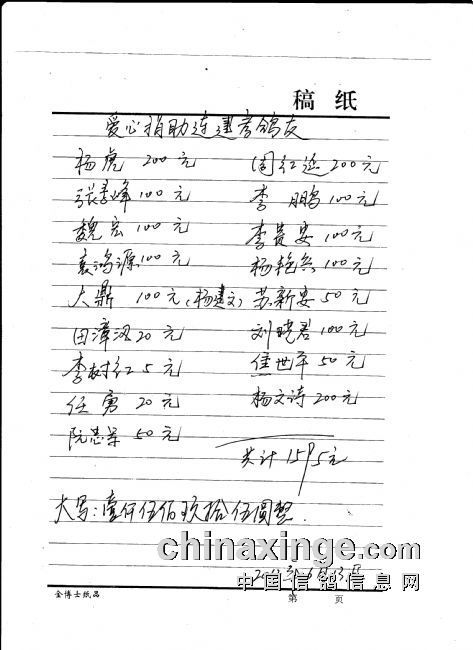 稿 纸
爱心捐助连建彦鸽友
杨虎 200元 周红延 200元
张季峰 100元 李鹏 100元
魏宏 100元 李贵安 100元
袁鸿源 100元 杨艳兵 100元
大鼎 100元(杨建文) 苏新安 50元
田漳 20元 刘晓君 100元
李树红 5元 世平 50元
任勇 20元 杨文诗 200元
阮忠 50元
共计 1595元
大写:壹仟伍佰玖拾伍圆整.
chinaxinge.com
中国信鸽信息网
金博士纸品 第 页